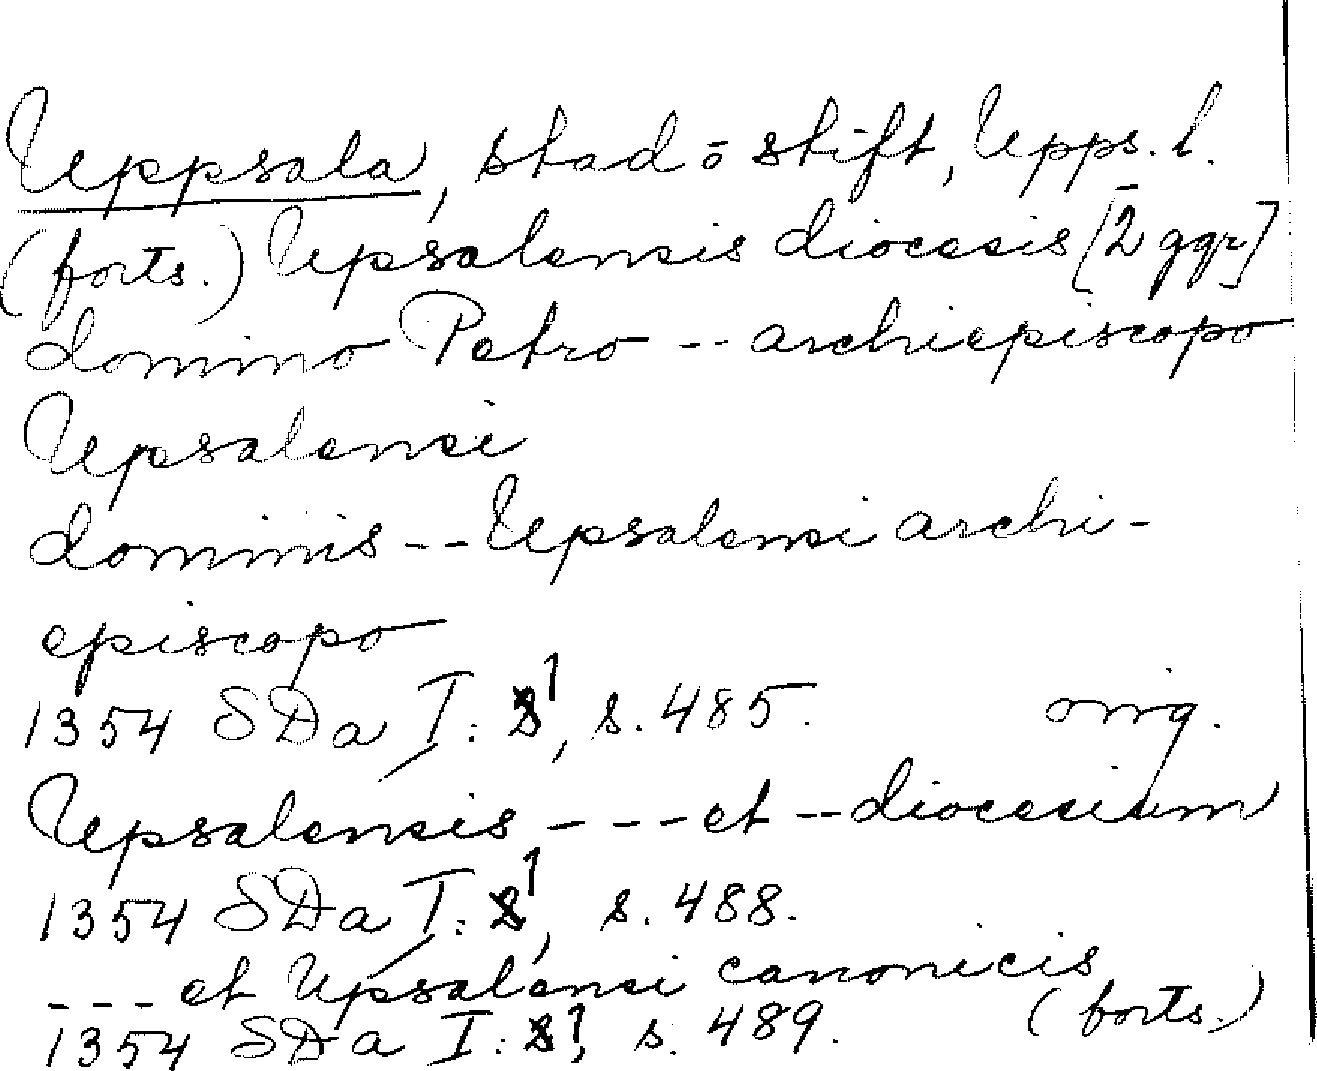 Uppsala, stad o stift, Upps. l.
(forts.) Upsalensis diocesis [2 ggr]
domino Petro -- archiepiscopo
Upsalensi
dominis -- Upsalensi archi-
episcopo
1354 SDa I: 1, s. 485. orig.
Upsalensis --- et -- diocesium
1354 SDa I: 1, s. 488.
--- et Upsalensi canonicis
1354 SDa I: 1, s. 489. (forts.)